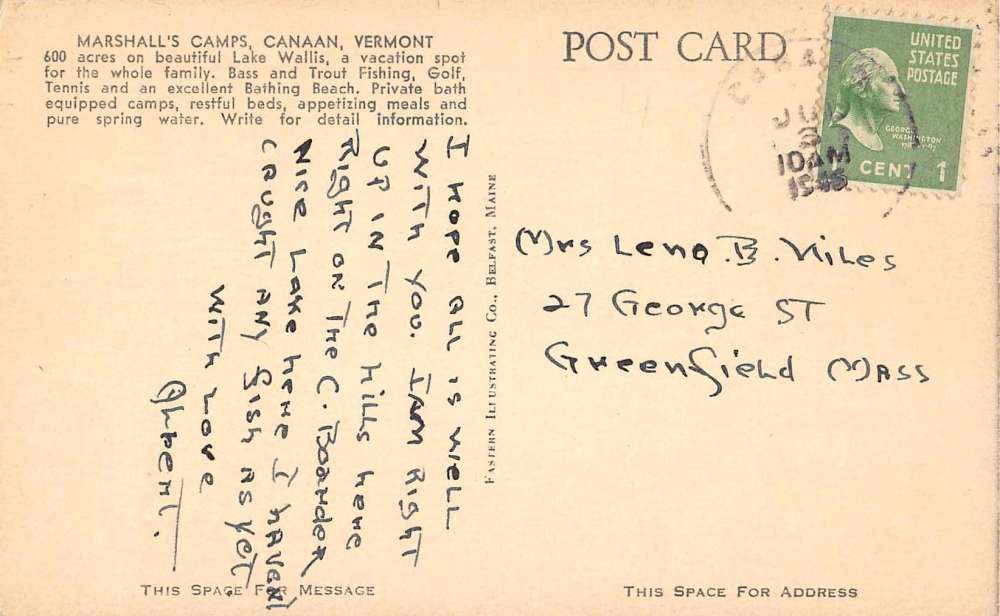 MARSHALL'S CAMPS, CANAAN, VERMONT
600 acres on beautiful Lake Wallis, a vacation spot
for the whole family. Bass and Trout Fishing, Golf,
Tennis and an excellent Bathing Beach. Private bath
equipped camps, restful beds, appetizing meals and
pure spring water. Write for detail information.
POST CARD
UNITED
STATES
POSTAGE
GEORGE
WASHINGTON
1 CENT 1
CANAAN
JUL
10 AM
I HOPE ALL IS WELL
WITH YOU. I AM RIGHT
UP IN THE HILLS HERE
RIGHT ON THE C. BOARDER
NICE LAKE HERE I HAVEN'
CAUGHT ANY FISH AS YET
WITH LOVE
ALBERT.
EASTERN ILLUSTRATING CO., BELFAST, MAINE
Mrs Lena. B. Niles
27 George ST
Greenfield MASS
THIS SPACE FOR MESSAGE
THIS SPACE FOR ADDRESS